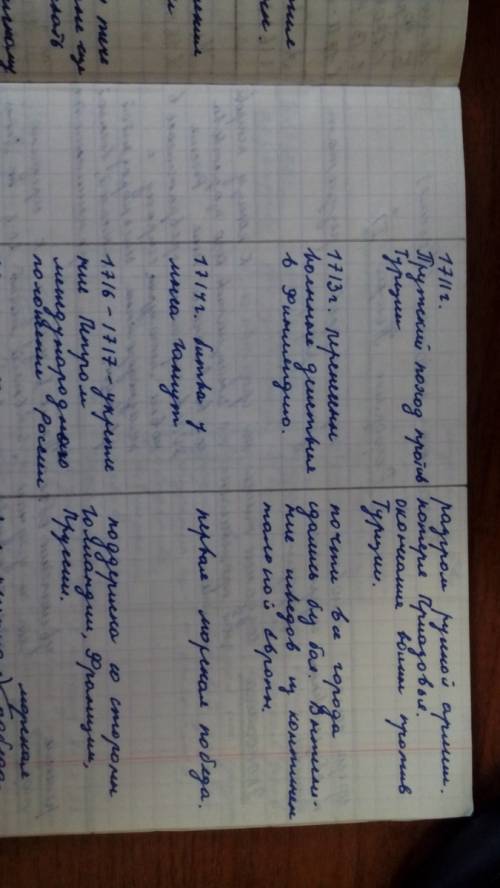 1711г.
Прутский поход против
Турции
разгром русской армии.
потеря Приазовья.
окончание войны против
Турции.
1713г. перенесены
военные действия
в Финляндию.
почти все города
сдались без боя. Вытесне-
ние шведов из континен
тальной Европы.
1714г. битва у
мыса Гангут
первая морская победа.
1716-1717 - укрепле
ние Петром
международного
положения России
поддержка со стороны
Голландии, Франции,
Пруссии.
морская